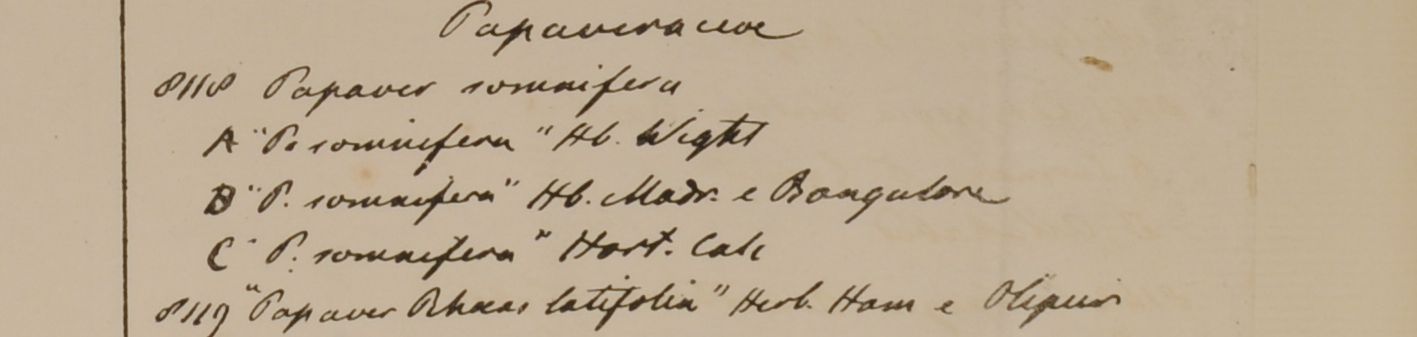 Papaveraceae
8118 Papaver somnifera
A "P. somnifera" Hb. Wight
B "P. somnifera" Hb. Madr. e Bangalore
C "P. somnifera" Hort. Calc
8119 "Papaver Rhaeas latifolia" Herb. Ham e